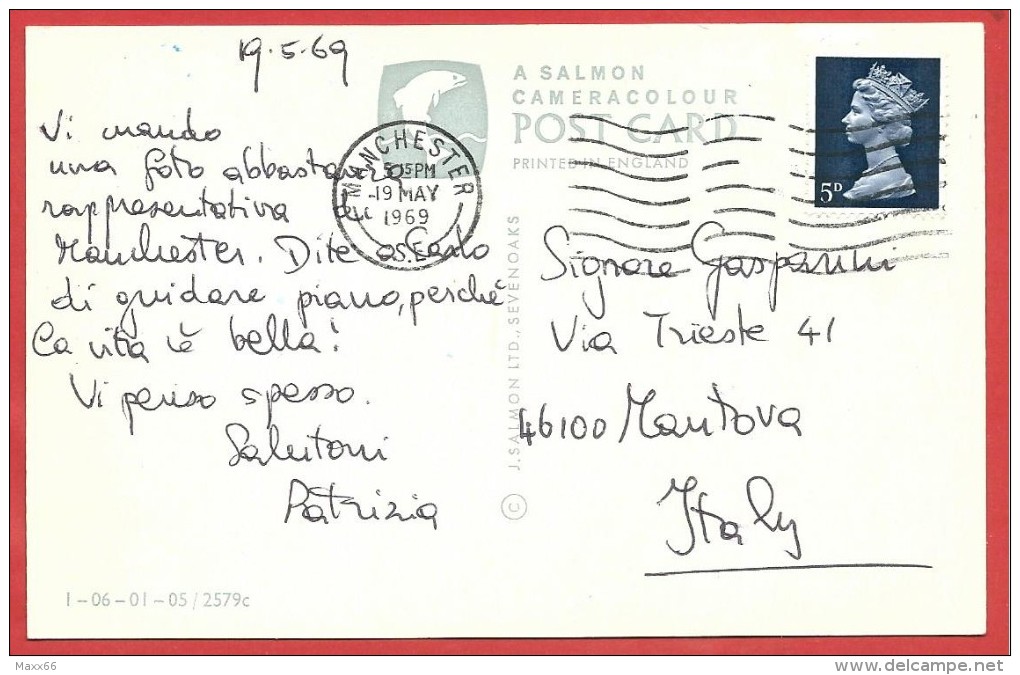 19.5.69
Vi mando
una foto abbastanza
rappresentativa di
Manchester. Dite a Carlo
di guidare piano, perché
La vita è bella!
Vi penso spesso.
Salutoni
Patrizia
I-06-01-05/2579c
MANCHESTER
5.15PM
19 MAY
1969
A SALMON
CAMERACOLOUR
POST CARD
PRINTED IN ENGLAND
© J. SALMON LTD., SEVENOAKS
5D
Signore Gasparini
Via Trieste 41
46100 Mantova
Italy
Maxx66
www.delcampe.net